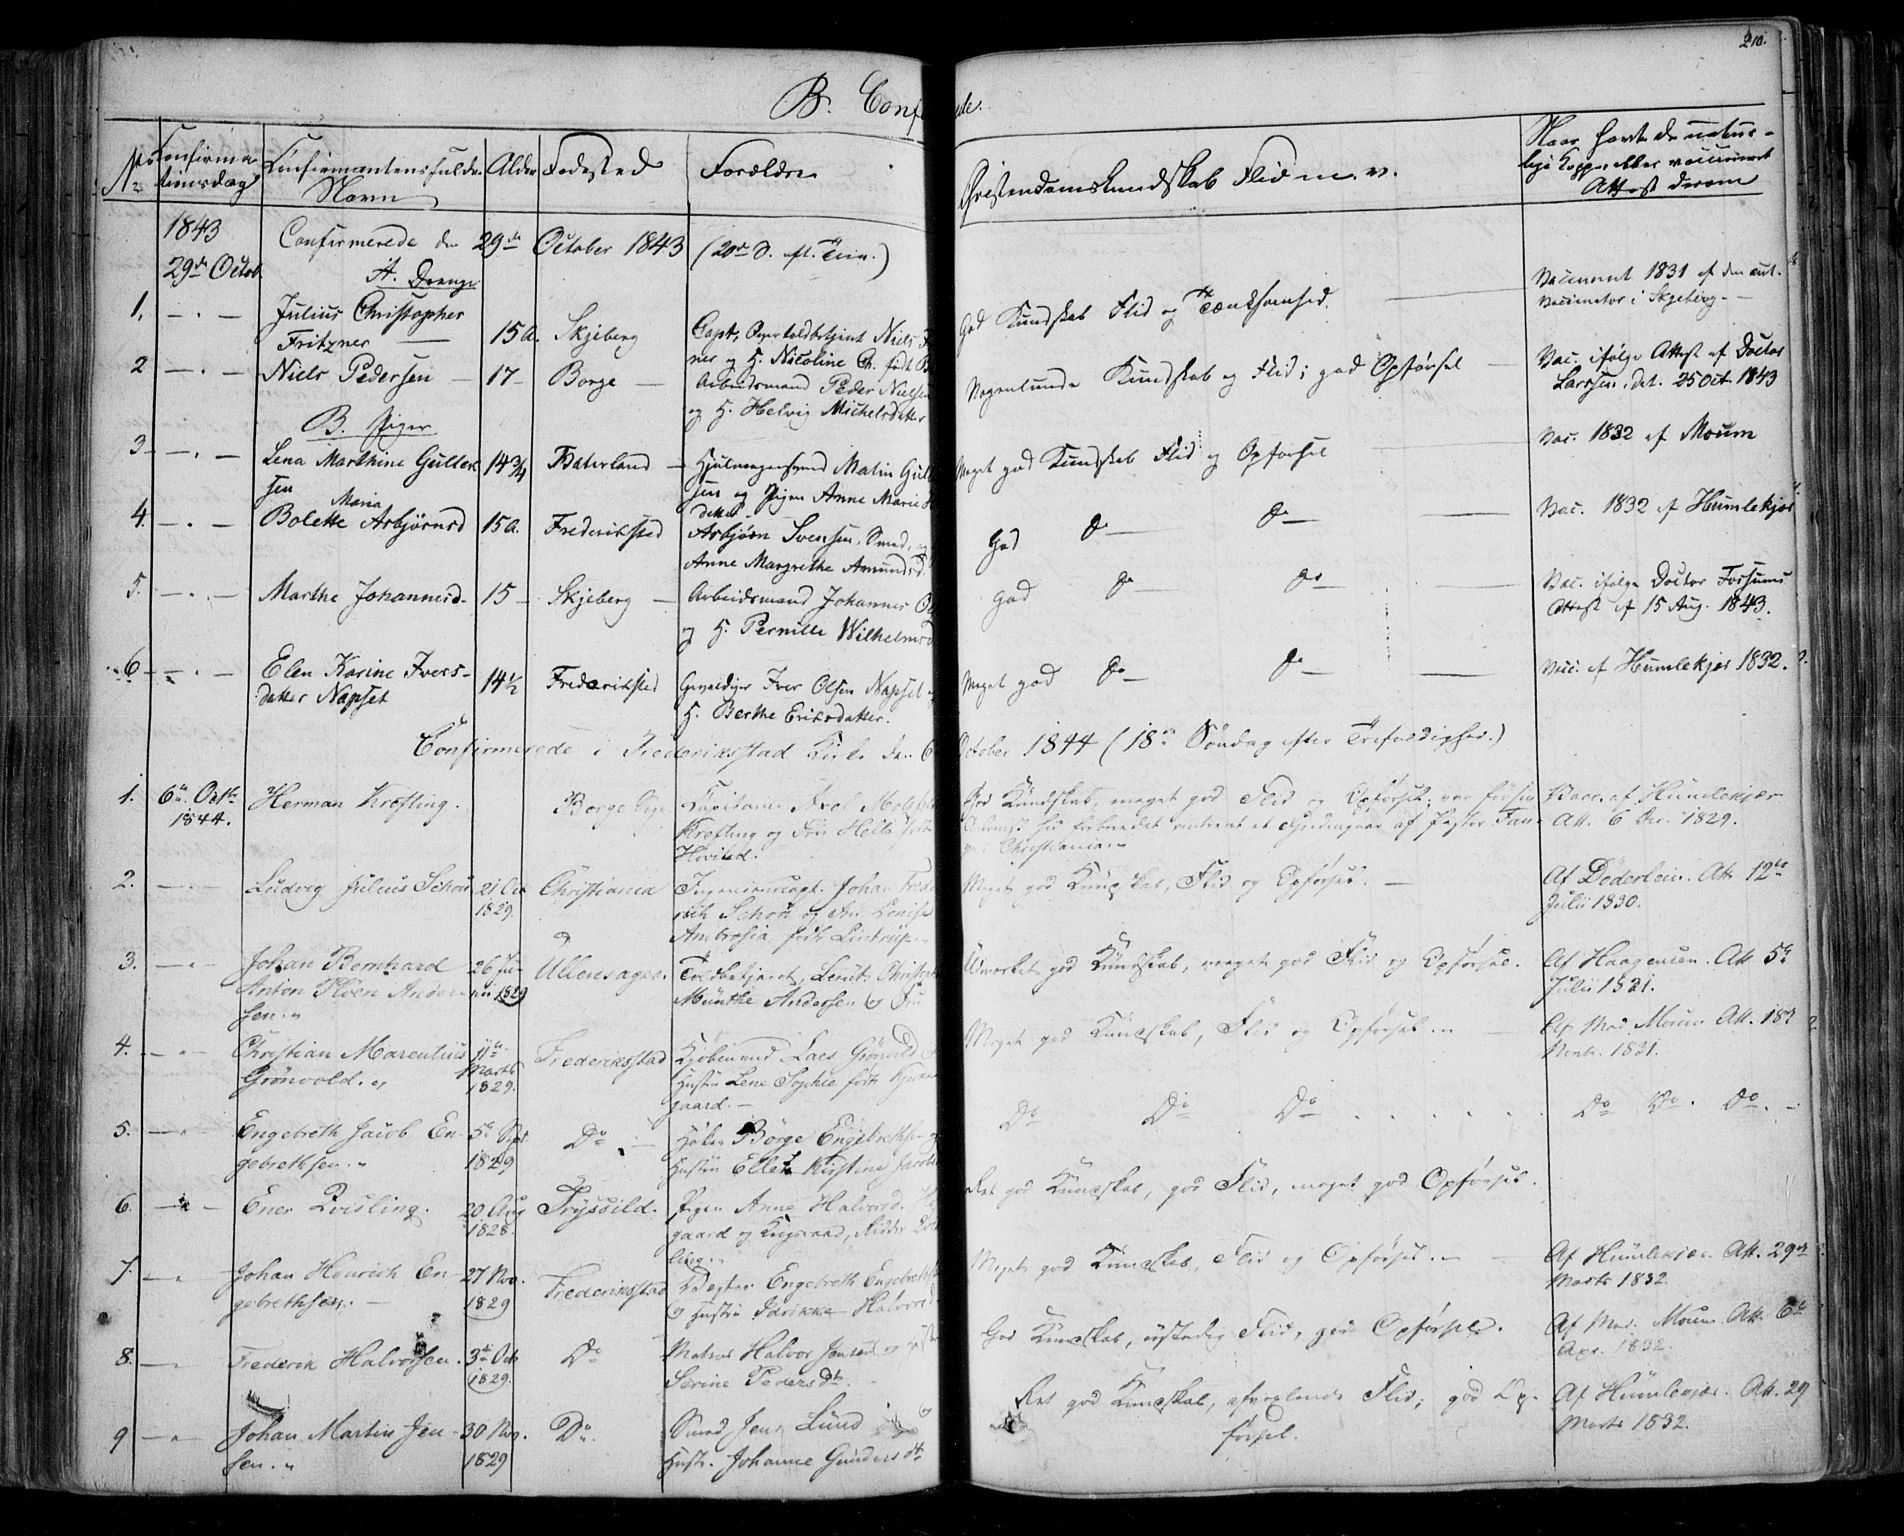 210.
B. Conf
de.
No
Confirma
tionsdag
Confirmantens fulde
Navn
Alder
Fødested
Forældre
Christendomskundskab Flid m. v.
Naar havt de natur-
lige Kopper eller vaccineret
Attest derom
1843
29de Octob.
Confirmerede den 29de October 1843 (20de S. eft. Trin.)
A. Drenge
1. Julius Christopher
Fritzner
15 A. Skjeberg
Capt., Overtoldbetjent Niels F
ner og H. Nicoline Ch. født B
God Kundskab Flid og Tænksomhed.
Vaccineret 1831 af den aut.
Vaccinator i Skjeberg.
2 Niels Pedersen 17 Borge
Arbeidsmand Peder Nielsen
og H. Helvig Michelsdatter
Nogenlunde Kundskab og Flid; god Opførsel
Vac. ifølge Attest af Doctor
Larssen, dat. 25 Oct. 1843
B. Piger
3 Lena Marthine Gullek
sen
14 3/4 Baterland
Hjulmagersvend Matin Gul
sen og Pigen Anne Marie
datter
Meget god Kundskab Flid og Opførsel
Vac. 1832 af Moum
4. Maria
Bolette Asbjørnsd 15 A. Frederikstad
Asbjørn Svensen, Smed, og
Anne Margrethe Amundsd.
God do do
Vac. 1832 af Humlekjær
5. Marthe Johannesd. 15 Skjeberg
Arbeidsmand Johannes Ol
og H. Pernille Wilhelmsd
God do do
Vac. ifølge Doctor Forsums
Attest af 15 Aug. 1843.
6 Elen Karine Ivers-
datter Napset
14 1/2 Frederikstad
Gevaldiger Iver Olsen Napset
H. Berthe Ericsdatter.
Meget god do do
Vacc. af Humlekjær 1832.
Confirmerede i Frederikstad Kirke den 6
October 1844 (18de Søndag efter Trefoldighed.)
1. 6te Octbr
1844.
Herman Krefting.
Borge
Capitain Axel
Krefting og Fru født
God Kundskab, meget god Flid og Opførsel; var før sin
Christiania
Vacc. af Humlekjær
Att. 6 1829.
2. Ludvig Julius Schou
21 Oct
1829.
Christiania
Ingenieurcapt. Johan Frede
rik Schou og Fru Lovise
Ambrosia født Lintrup.
Meget god Kundskab, Flid og Opførsel.
Af Døderlein. Att 12te
Julii 1830.
3. Johan Bernhard
Anton Ander
sen.
26 Ju-
nii 1829
Ullensager.
Toldbetjent, Lieut. Christop
Munthe Andersen og Fru
Udmærket god Kundskab, meget god Flid og Opførsel.
Af Haagensen. Att 5te
Julii 1831.
4. Christian Marentius
Grønvold.
11te
Marts
1829.
Frederiksstad
Kjøbmand Lars Grønvold
Hustru Lene Sophie født
gaard.
Meget god Kundskab, Flid og Opførsel.
Af Mad. Moum Att. 18de
Novbr. 1831.
5. Engebreth Jacob En-
gebrethsen.
5te Sept
1829
Do
Høker Børge Engebrethsen
Hustru Ellen Kirstine Jacobs
Do Do Do
Do Do. Do.
6. Ener Qvisling.
20 Aug
1828.
Trysild.
Pigen Anne Halvorsd.
gaard og Krigsraad, Ridder Qvis
ling.
Ret god Kundskab, god Flid, meget god Opførsel.
7. Johan Henrich En-
gebrethsen.
27 Nov.
1829
Frederiksstad
Vægter Engebreth Engebreths
og Hustru Idrikke Halvorsd
Meget god Kundskab, Flid og Opførsel.
Af Humlekjær. Att. 29de
Marts 1832.
8. Frederik Halvorsen.
3die Oct
1829.
Do
Matros Halvor Jensen og
Serine Pedersdtr.
God Kundskab, ustadig Flid, god Opførsel.
Af Mad. Moum. Att. 6te
Apr. 1832.
9 Johan Martin Jen-
sen.
30 Nov.
1829
Do.
Smed Jens Lund
Hustr. Johanne Gundersdtr
Ret god Kundskab, afvexlende Flid; god Op-
førsel.
Af Humlekjær. Att. 29
Marts 1832.